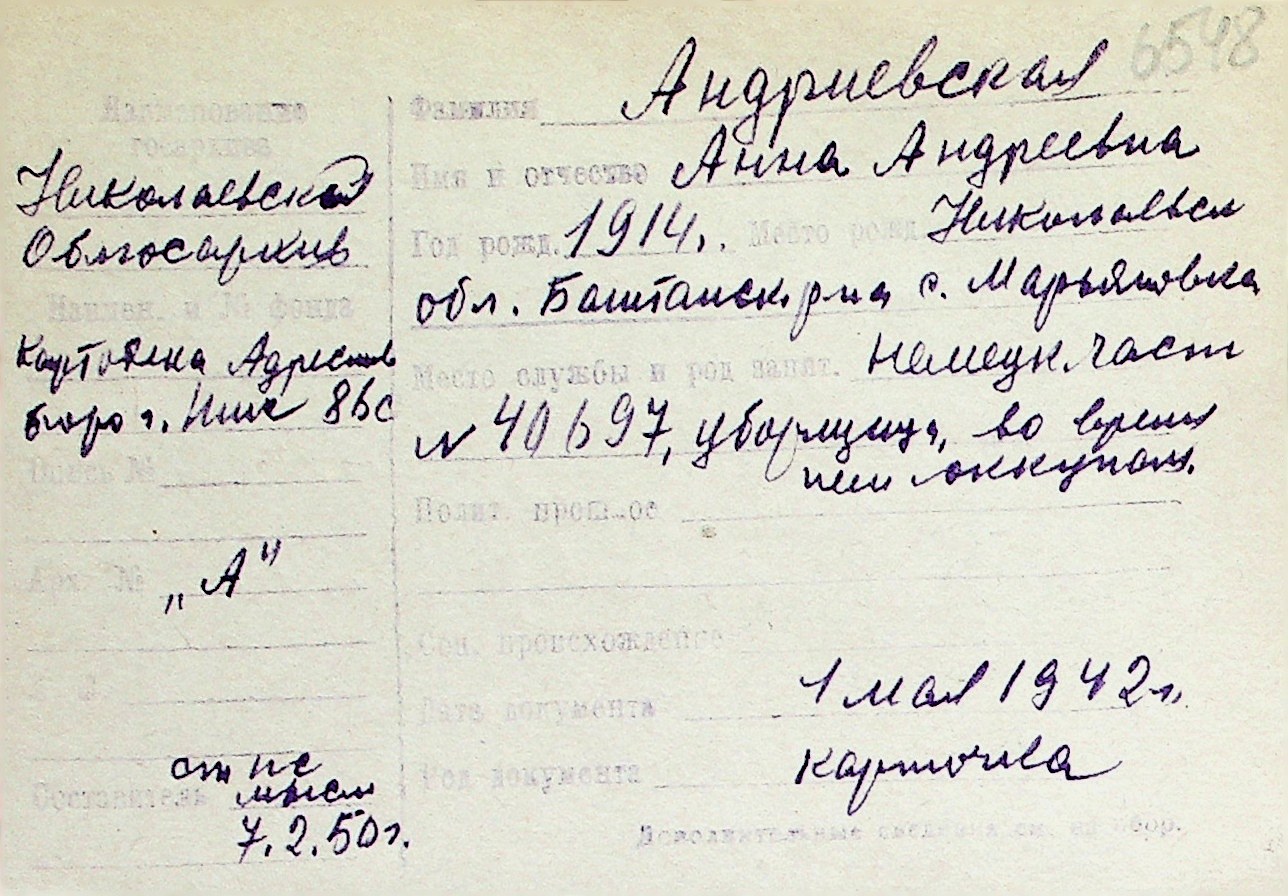 6548
Наименование
госархива
Николаевский
Облгосархив
Наимен. и № фонда
Картотека Адресного
бюро г. 86с
Опись №
Арх. № „А"
Составитель
7.2.50г.
Фамилия Андриевская
Имя и отчество Анна Андреевна
Год рожд. 1914. Место рожд. Николаевск
обл. Баштанск. р-на с. Марьяновка
Место службы и род занят. немецк. част
№ 40697, уборщица, во время
нем оккупац.
Полит. прошлое
Соц. происхождение
Дата документа 1 мая 1942г.
Род документа карточка
Дополнительные сведения см. на обор.